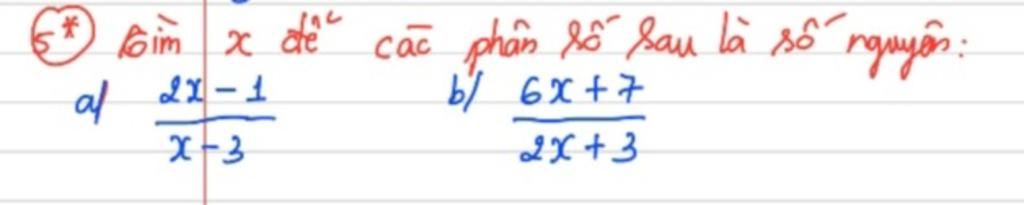 5* Tìm x để các phân số sau là số nguyên:
a/ (2x - 1)/(x - 3) b/ (6x + 7)/(2x + 3)